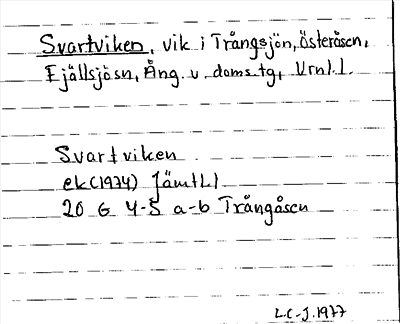 Svartviken, vik i Trångsjön, Österåsen,
Fjällsjösn, Ång. v. domstg, Vrnl.l.
Svartviken
ek(1974) JämtLl
20 G 4-5 a-b Trångåsen
L.C-J. 1977